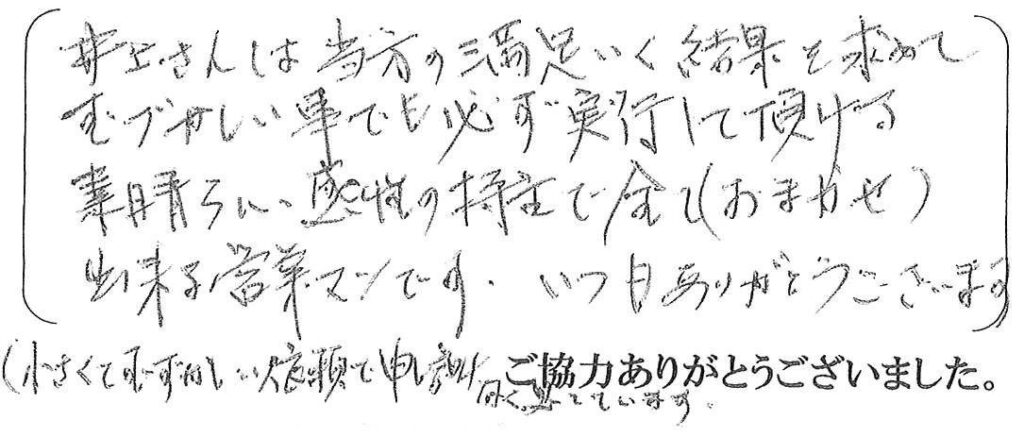 井上さんは当方の満足いく結果を求めて
むづかしい事でも必ず実行して頂ける
素晴らしい感性の持主で全て(おまかせ)
出来る営業マンです。いつもありがとうございます
(小さくてむずかしい依頼で申し訳
ご協力ありがとうございました。
なく思っています。